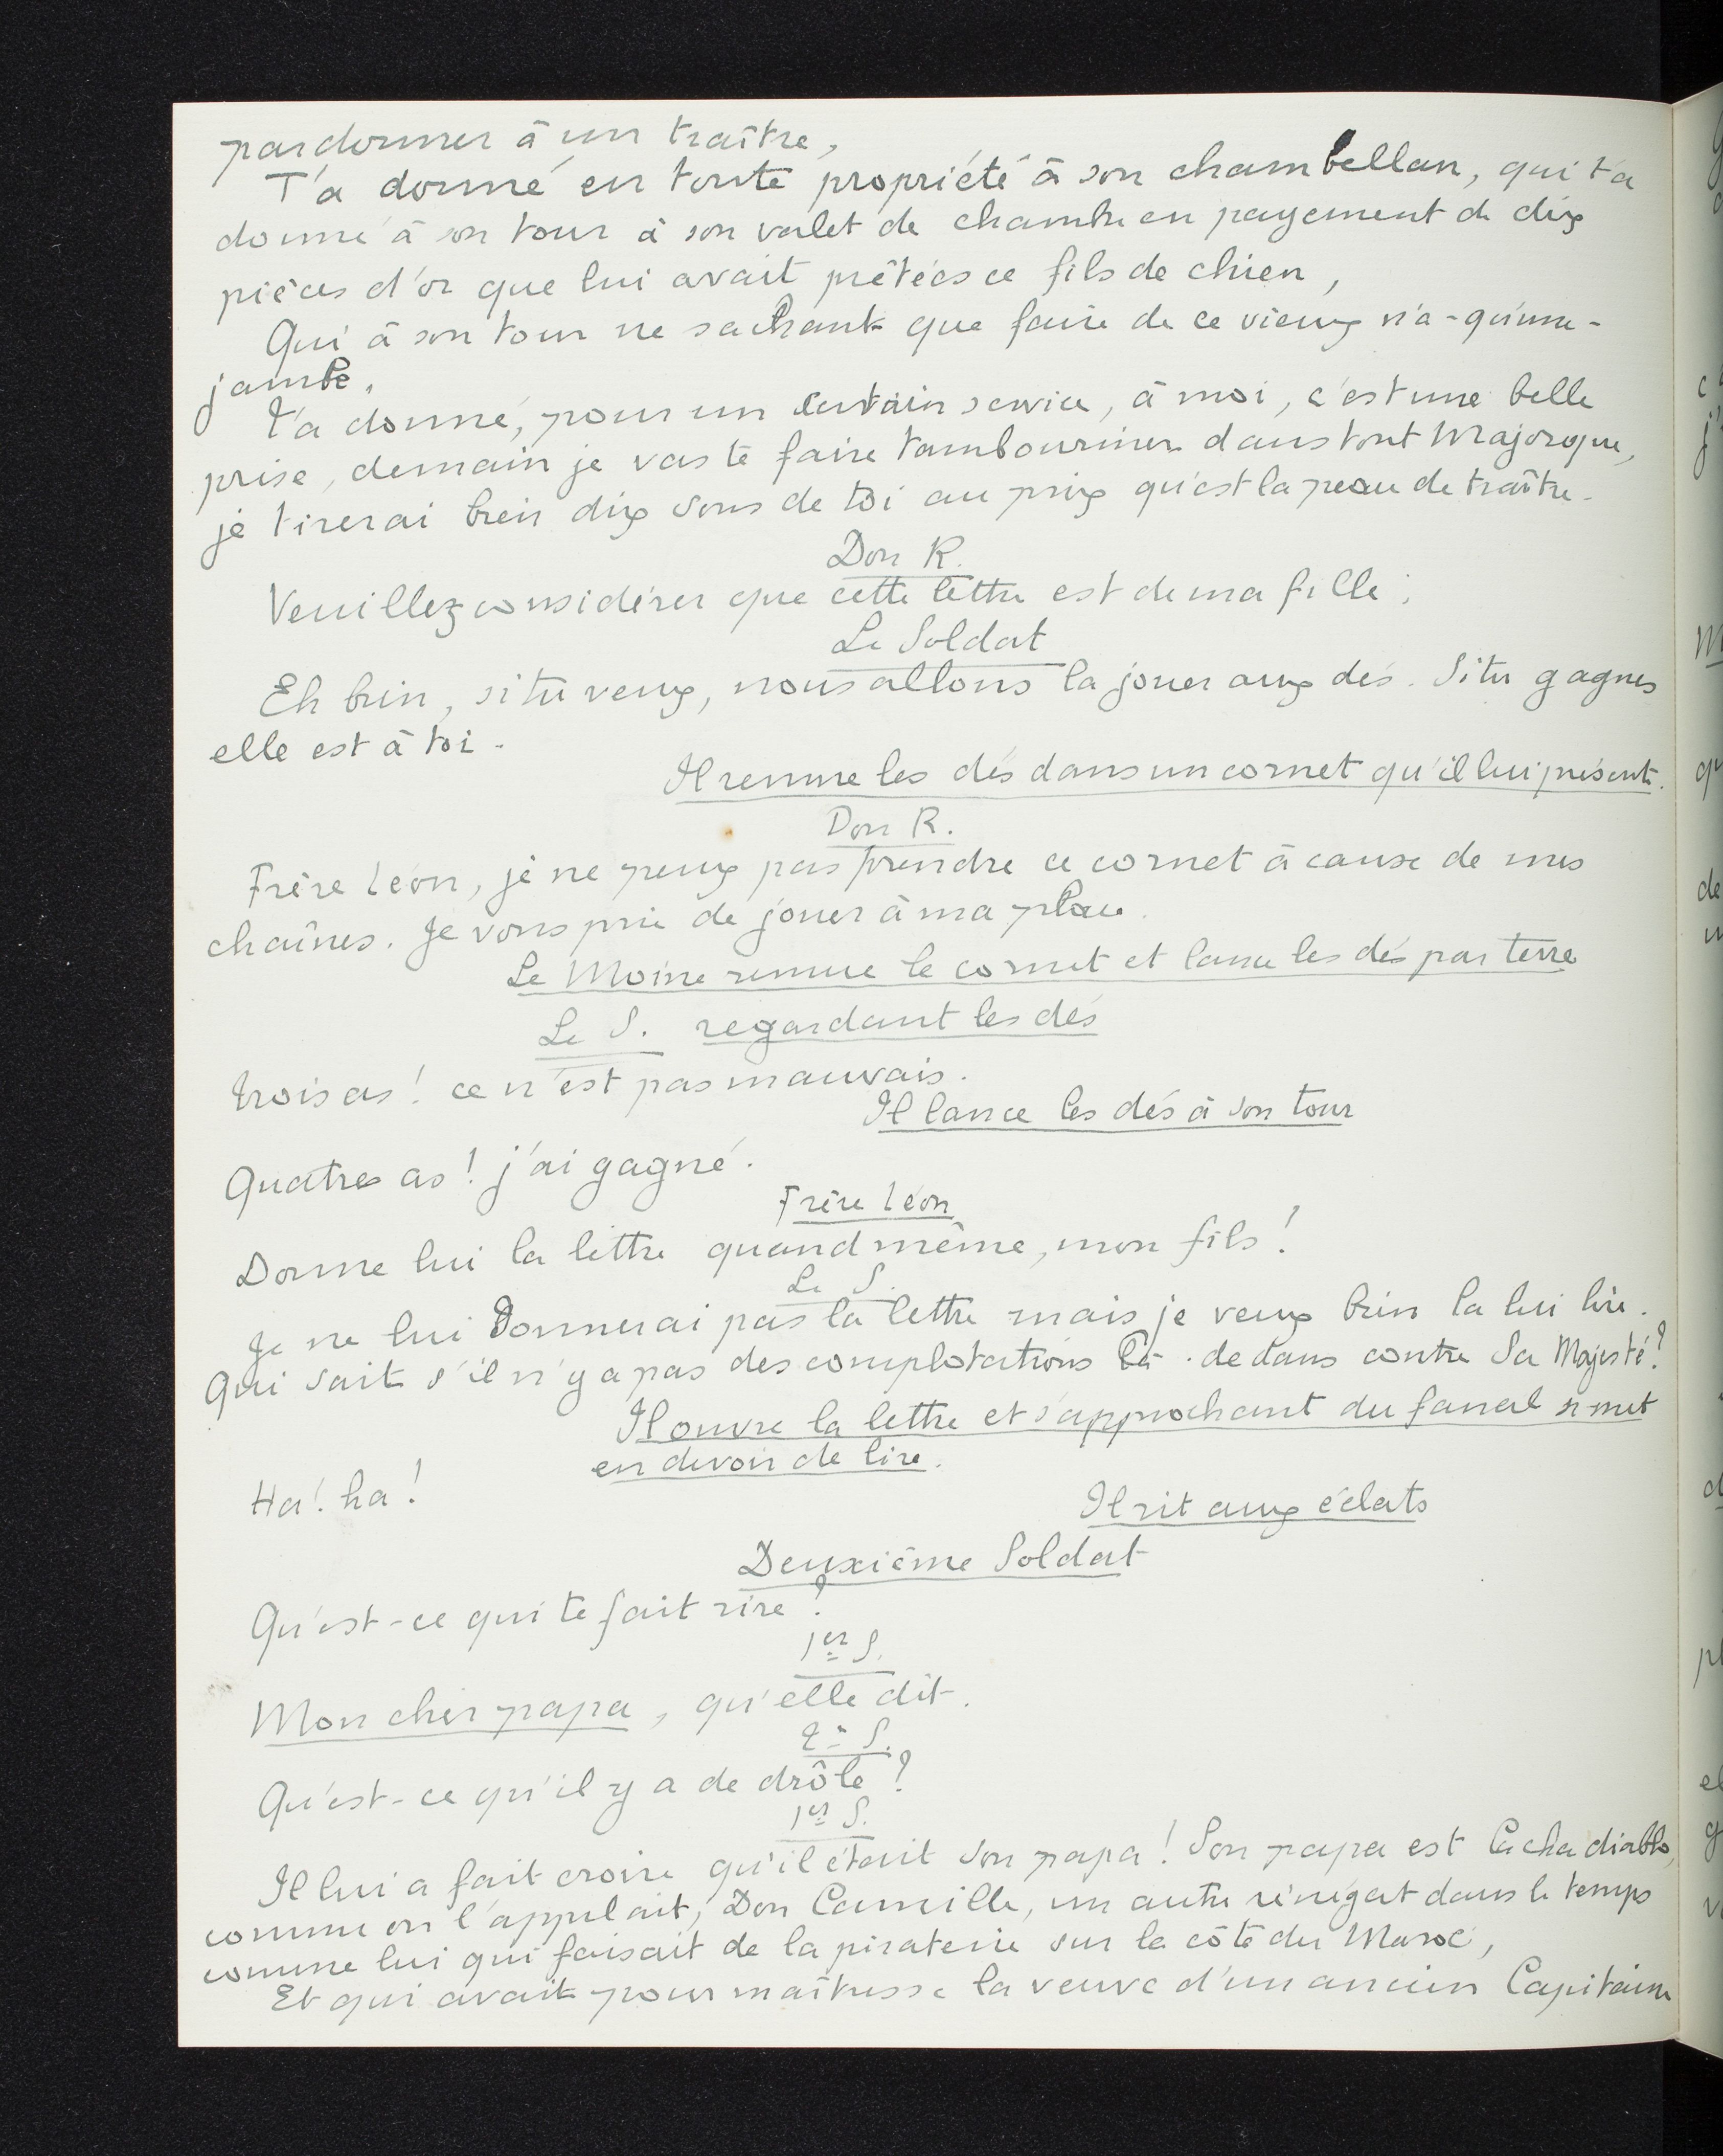 pardonner à un traître,
T'a donné en toute propriété à son chambellan, qui t'a
donné à son tour à son valet de chambre en payement de dix
pièces d'or que lui avait prêtées ce fils de chien,
Qui à son tour ne sachant que faire de ce vieux n'a-qu'une-
jambe,
t'a donné, pour un certain service, à moi, c'est une belle
prise, demain je vas te faire tambouriner dans tout Majorque,
je tirerai bien dix sous de toi au prix qu'est la peau de traître.
Don R.
Veuillez considérer que cette lettre est de ma fille.
Le Soldat
Eh bien, si tu veux, nous allons la jouer aux dés. Si tu gagnes
elle est à toi.
Il remue les dés dans un cornet qu'il lui présente.
Don R.
Frère Léon, je ne peux pas prendre ce cornet à cause de mes
chaînes. Je vous prie de jouer à ma place.
Le Moine remue le cornet et lance les dés par terre
Le S. regardant les dés
trois as! ce n'est pas mauvais.
Il lance les dés à son tour
Quatres as! j'ai gagné.
Frère Léon
Donne lui la lettre quand même, mon fils!
Le S.
Je ne lui donnerai pas la lettre mais je veux bien la lui lire.
Qui sait s'il n'y a pas des complotations là-dedans contre Sa Majesté?
Il ouvre la lettre et s'approchant du fanal se met
en devoir de lire.
Ha! ha!
Il rit aux éclats
Deuxième Soldat
Qu'est-ce qui te fait rire?
1er S.
Mon cher papa, qu'elle dit.
2e S.
Qu'est-ce qu'il y a de drôle?
1er S.
Il lui a fait croire qu'il était son papa! Son papa est Cachadiablo,
comme on l'appelait, Don Camille, un autre rénégat dans le temps
comme lui qui faisait de la piraterie sur la côte du Maroc,
Et qui avait pour maîtresse la veuve d'un ancien Capitaine